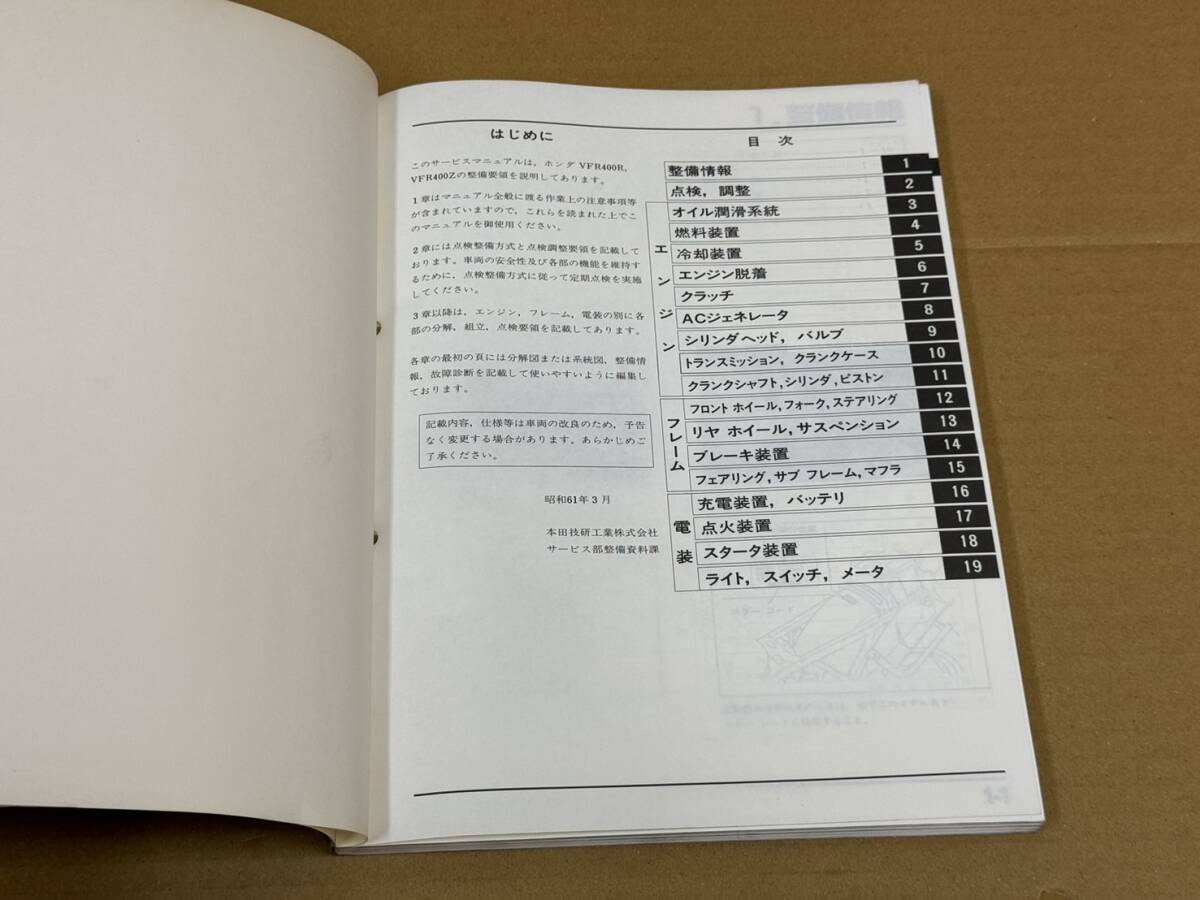 はじめに
このサービスマニュアルは，ホンダ VFR400R，
VFR400Zの整備要領を説明してあります。
1章はマニュアル全般に渡る作業上の注意事項等
が含まれていますので，これらを読まれた上でこ
のマニュアルを御使用ください。
2章には点検整備方式と点検調整要領を記載して
おります。車両の安全性及び各部の機能を維持す
るために，点検整備方式に従って定期点検を実施
してください。
3章以降は，エンジン，フレーム，電装の別に各
部の分解，組立，点検要領を記載してあります。
各章の最初の頁には分解図または系統図，整備情
報，故障診断を記載して使いやすいように編集し
ております。
記載内容，仕様等は車両の改良のため，予告
なく変更する場合があります。あらかじめご
了承ください。
昭和61年3月
本田技研工業株式会社
サービス部整備資料課
目次
整備情報 1
点検，調整 2
エンジン
オイル潤滑系統 3
燃料装置 4
冷却装置 5
エンジン脱着 6
クラッチ 7
ACジェネレータ 8
シリンダヘッド，バルブ 9
トランスミッション，クランクケース 10
クランクシャフト，シリンダ，ピストン 11
フレーム
フロント ホイール，フォーク，ステアリング 12
リヤ ホイール，サスペンション 13
ブレーキ装置 14
フェアリング，サブ フレーム，マフラ 15
電装
充電装置，バッテリ 16
点火装置 17
スタータ装置 18
ライト，スイッチ，メータ 19
1. 整備情報
カラーコード
1-1